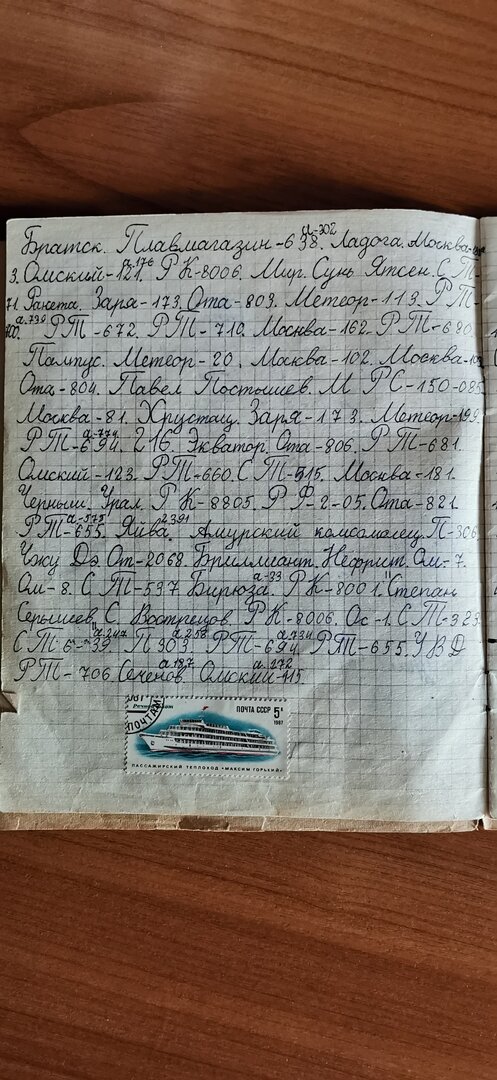 а-302
Братск. Плавмагазин-638. Ладога. Москва-
а-176
3. Омский-121. РК-8006. Мир. Сунь Ятсен. СТ-
71. Ракета. Заря-173. Ота-803. Метеор-113. РТ-
а-739
700. РТ-672. РТ-710. Москва-162. РТ-680.
Пампус. Метеор-20. Москва-102. Москва-
Ота-804. Павел Постышев. М РС-150-085
Москва-81. Хрусталь. Заря-173. Метеор-199.
а-774
РТ-694. 216. Экватор. Ота-806. РТ-681.
Омский-123. РТ-660. СТ-315. Москва-181.
Черныш. Урал. РК-8805. РФ-2-05. Ота-821.
а-575 2391
РТ-655. Яйва. Амурский комсомолец. П-306.
Чжу Дэ. От-2068. Бриллиант. Нефрит. Ом-7.
а-33
Ом-8. СТ-597 Бирюза. РК-8001. "Степан
Серышев. С. Вострецов. РК-8006. Ос-1. СТ-323.
а-247 а-258 а-734
СТ 6-39. П303. РТ-694. РТ-655. УВД
а-187 а-272
РТ-706. Сеченов. Омский-115.
ПОЧТАМ
ПОЧТА СССР 5к
1987
ПАССАЖИРСКИЙ ТЕПЛОХОД «МАКСИМ ГОРЬКИЙ»